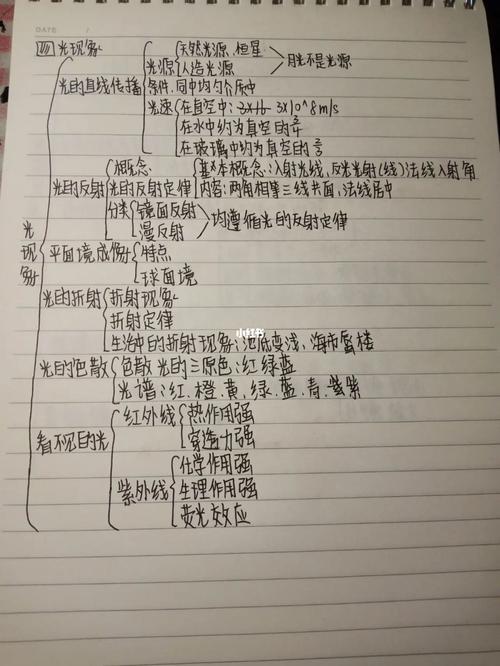 DATE
四 光现象
光现象
光的直线传播
光源
天然光源.恒星
人造光源
月光不是光源
条件:同种均匀介质中
光速
在真空中: 3×10^8m/s
在水中约为真空的3/4
在玻璃中约为真空的2/3
光的反射
概念
基本概念:入射光线,反光光射(线)法线入射角
光的反射定律
内容:两角相等三线共面,法线居中
分类
镜面反射
漫反射
均遵循光的反射定律
平面境成像
特点
球面境
光的折射
折射现象
折射定律
生活中的折射现象:池底变浅,海市蜃楼
光的色散
色散 光的三原色:红绿蓝
光谱:红.橙.黄.绿.蓝.青.紫
看不见的光
红外线
热作用强
穿透力强
紫外线
化学作用强
生理作用强
荧光效应
小红书